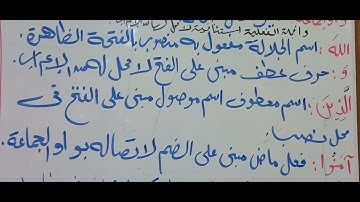 واو الجماعة
والجملة الفعلية استئنافية لا محل لها من الإعراب
اللهَ: اسم الجلالة مفعول به منصوب بالفتحة الظاهرة.
وَ: حرف عطف مبنى على الفتح لا محل له من الإعراب.
الَّذِينَ: اسم معطوف اسم موصول مبنى على الفتح فى
محل نصب.
آمَنُوا: فعل ماض مبنى على الضم لاتصاله بواو الجماعة.